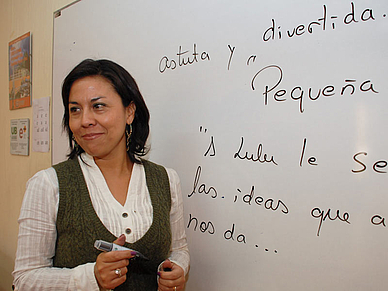 divertida.
astuta y "
Pequeña
"A Lulu le se
las ideas que a
nos da...
UB